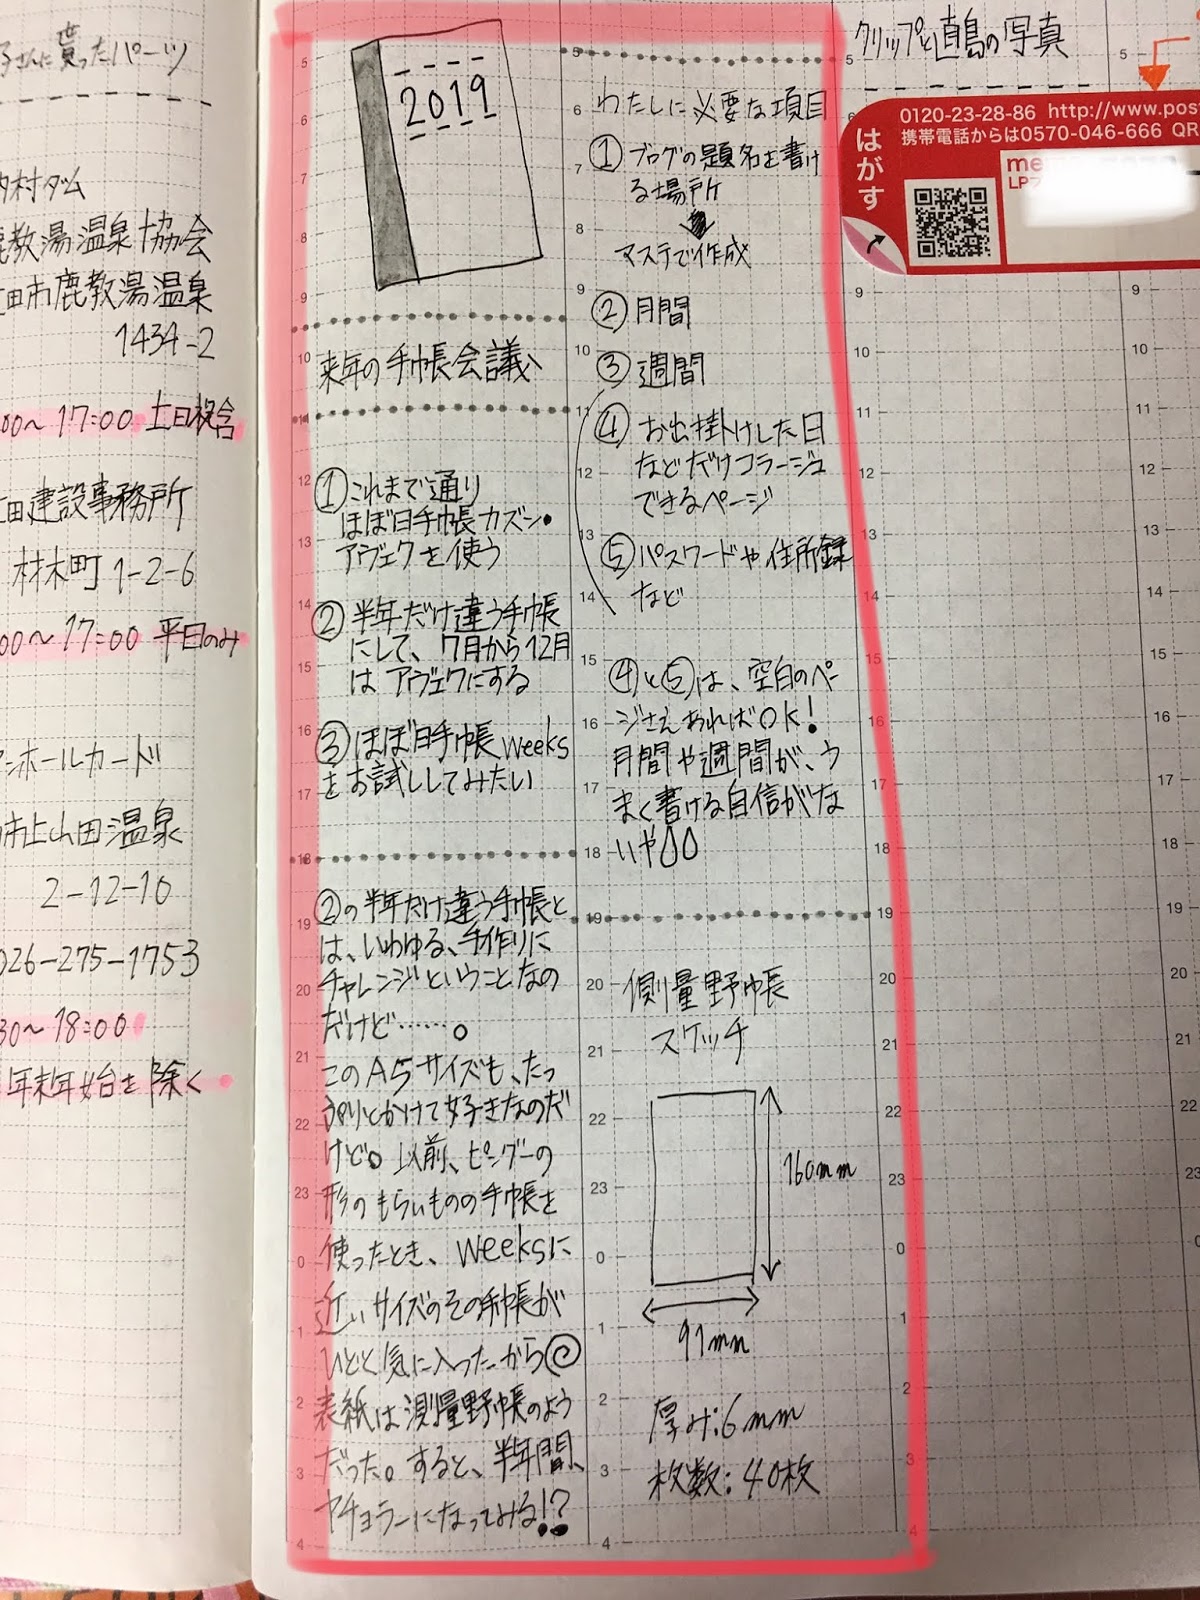 子さんに貰ったパーツ
内村ダム
鹿教湯温泉協会
田市鹿教湯温泉
1434-2
00〜17:00 土日祝含
田建設事務所
材木町1-2-6
00〜17:00 平日のみ
ンホールカード
市上山田温泉
2-12-10
026-275-1753
30〜18:00
年末年始を除く
2019
来年の手帳会議
①これまで通り
ほぼ日手帳カズン・
アヴェクを使う
②半年だけ違う手帳
にして、7月から12月
は アヴェクにする
③ほぼ日手帳weeks
をお試ししてみたい
②の半年だけ違う手帳と
は、いわゆる、手作りに
チャレンジということなの
だけど……。
このA5サイズも、たっ
ぷりとかけて好きなのだ
けど。以前、ピングーの
形のもらいものの手帳を
使ったとき、weeksに
近いサイズのその手帳が
ひどく気に入ったから
表紙は測量野帳のよう
だった。すると、半年間、
ヤチョラーになってみる!?
わたしに必要な項目
①ブログの題名を書け
る場所
マステで作成
②月間
③週間
④お出掛けした日
などだけコラージュ
できるページ
⑤パスワードや住所録
など
④と⑤は、空白のペー
ジさえあればOK!
月間や週間が、う
まく書ける自信がな
いや
測量野帳
スケッチ
160mm
91mm
厚み:6mm
枚数:40枚
クリップと直島の写真
はがす
0120-23-28-86 http://www.pos
携帯電話からは0570-046-666 QR
5
6
7
8
9
10
11
12
13
14
15
16
17
18
19
20
21
22
23
0
1
2
3
4
5
6
7
8
9
10
11
12
13
14
15
16
17
18
19
20
21
22
23
0
1
2
3
4
5
6
9
10
11
12
13
14
15
16
17
18
19
20
21
22
23
0
1
2
3
4
5
9
10
11
12
13
14
15
16
17
18